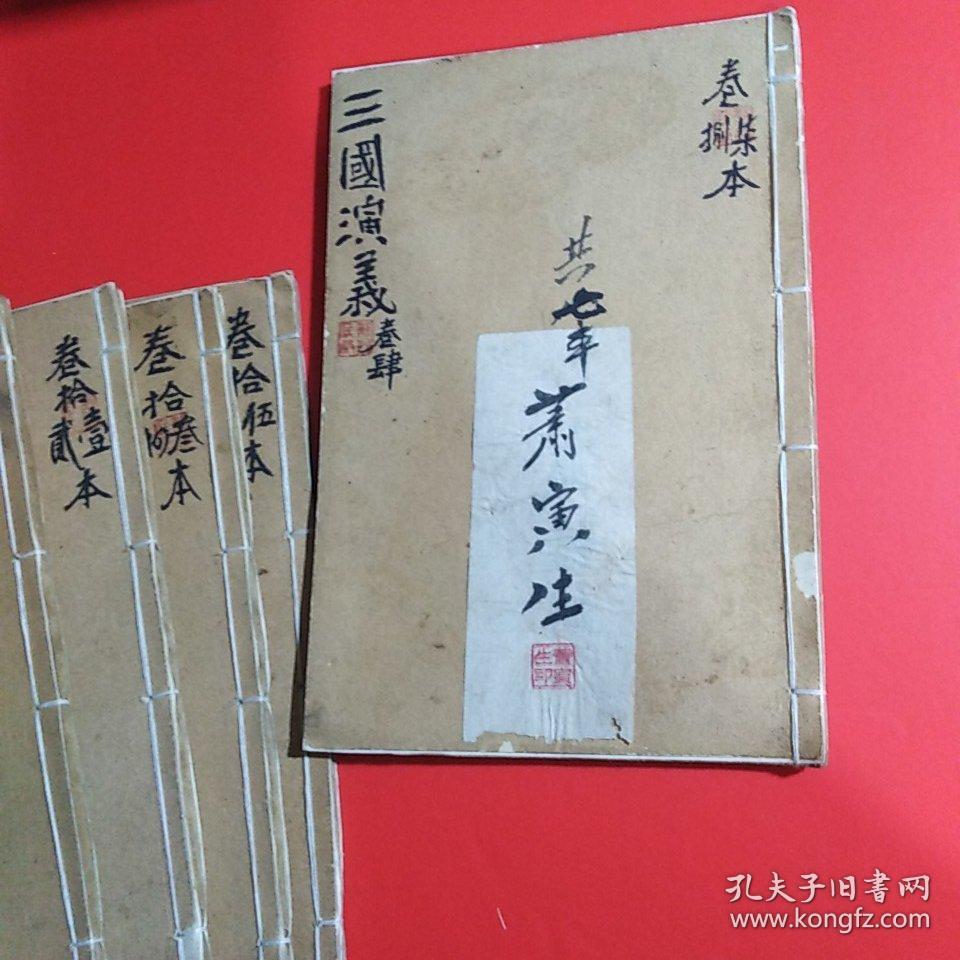 三國演義
卷肆
卷柒捌本
共七本
蕭寅生
蕭寅生印
卷拾壹貳本
卷拾叁肆本
卷拾伍本
孔夫子旧書网
www.kongfz.com